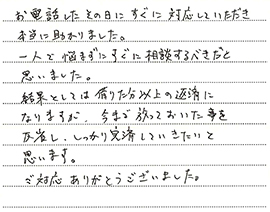 お電話したその日にすぐに対応していただき
本当に助かりました。
一人で悩まずにすぐに相談するべきだと
思いました。
結果としては借りた分以上の返済に
なりますが、今まで放っておいた事を
反省し、しっかり完済していきたいと
思います。
ご対応ありがとうございました。